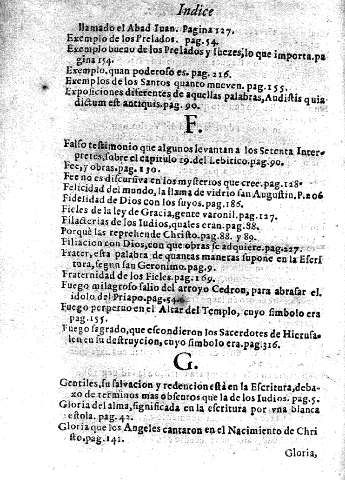 Indice
llamado el Abad Iuan. Pagina 127.
Exemplo de los Prelados. pag. 54.
Exemplo bueno de los Prelados y Iuezes, lo que importa. pa
gina 154.
Exemplo, quan poderoso es. pag. 216.
Exemplos de los Santos quanto mueven. pag. 155.
Exposiciones diferentes de aquellas palabras, Audistis quia
dictum est antiquis. pag. 90.
F.
Falso testimonio que algunos levantan a los Setenta Inter-
pretes, sobre el capitulo 19. del Lebitico. pag. 90.
Fee, y obras. pag. 130.
Fee no es discursiva en los mysterios que cree. pag. 128.
Felicidad del mundo, la llama de vidrio san Augustin. P. 206
Fidelidad de Dios con los suyos. pag. 186.
Fieles de la ley de Gracia, gente varonil. pag. 127.
Filacterias de los Iudios, quales eran. pag. 88.
Porquè las reprehende Christo. pag. 88. y 89.
Filiacion con Dios, con que obras se adquiere. pag. 227.
Frater, esta palabra de quantas maneras supone en la Escri
tura, segun san Geronimo. pag. 9.
Fraternidad de los Fieles. pag. 169.
Fuego milagroso salio del arroyo Cedron, para abrasar el
idolo del Priapo. pag. 54.
Fuego perpetuo en el Altar del Templo, cuyo simbolo era
pag. 155.
Fuego sagrado, que escondieron los Sacerdotes de Hierusa-
len en su destruycion, cuyo simbolo era. pag. 316.
G.
Gentiles, su salvacion y redencion està en la Escritura, deba-
xo de terminos mas obscuros que la de los Iudios. pag. 5.
Gloria del alma, significada en la escritura por vna blanca
estola. pag. 42.
Gloria que los Angeles cantaron en el Nacimiento de Chri
sto. pag. 141.
Gloria,